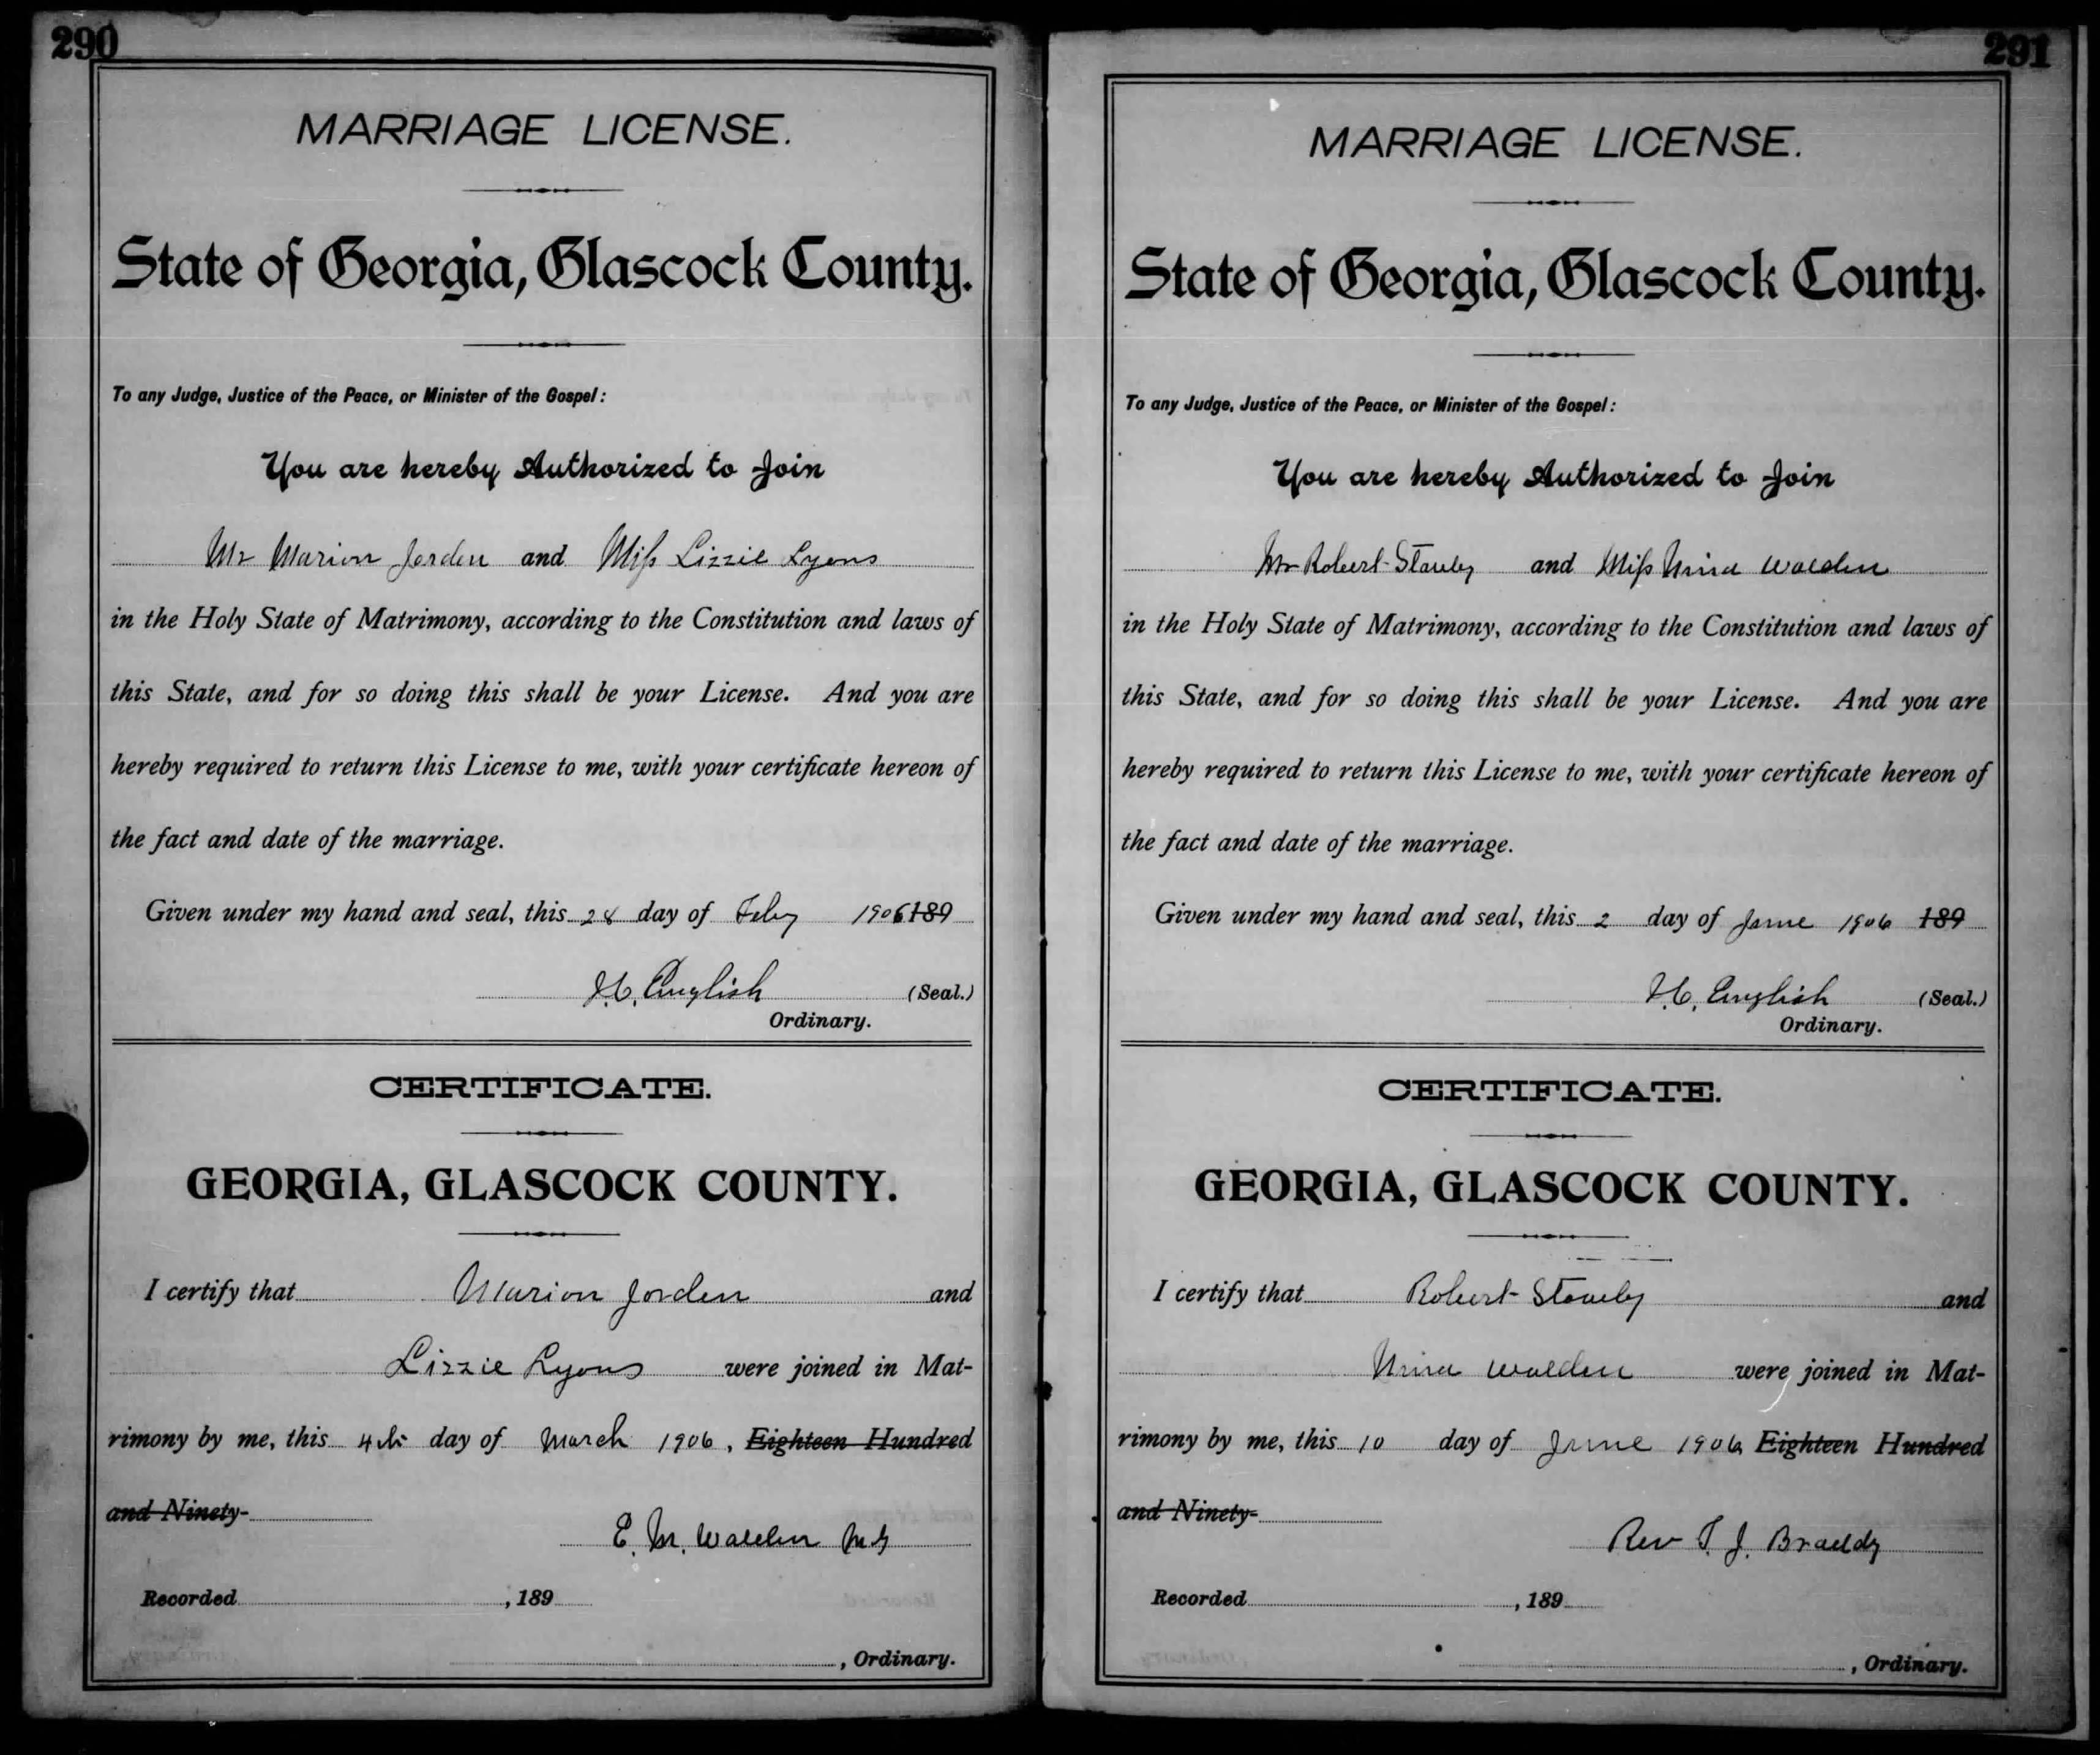 290
MARRIAGE LICENSE.
State of Georgia, Glascock County.
To any Judge, Justice of the Peace, or Minister of the Gospel:
You are hereby Authorized to Join
Mr Marion Jorden and Miss Lizzie Lyons
in the Holy State of Matrimony, according to the Constitution and laws of
this State, and for so doing this shall be your License. And you are
hereby required to return this License to me, with your certificate hereon of
the fact and date of the marriage.
Given under my hand and seal, this 28 day of Feby 1906 189
English (Seal.)
Ordinary.
CERTIFICATE.
GEORGIA, GLASCOCK COUNTY.
I certify that Marion Jorden and
Lizzie Lyons were joined in Mat-
rimony by me, this 4th day of March 1906, Eighteen Hundred
and Ninety-
E. M. Walden M G
Recorded , 189
, Ordinary.
291
MARRIAGE LICENSE.
State of Georgia, Glascock County.
To any Judge, Justice of the Peace, or Minister of the Gospel:
You are hereby Authorized to Join
Mr Robert Stanley and Miss Nina Walden
in the Holy State of Matrimony, according to the Constitution and laws of
this State, and for so doing this shall be your License. And you are
hereby required to return this License to me, with your certificate hereon of
the fact and date of the marriage.
Given under my hand and seal, this 2 day of June 1906 189
English (Seal.)
Ordinary.
CERTIFICATE.
GEORGIA, GLASCOCK COUNTY.
I certify that Robert Stanley and
Nina Walden were joined in Mat-
rimony by me, this 10 day of June 1906 Eighteen Hundred
and Ninety-
Rev T. J. Braddy
Recorded , 189
, Ordinary.